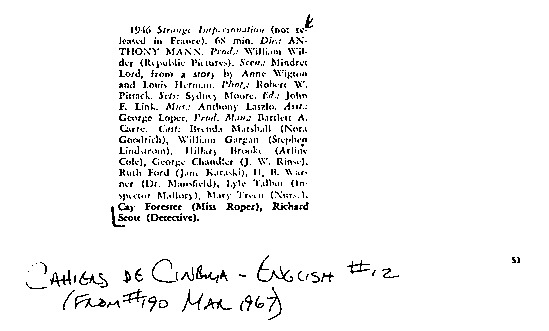 1946 Strange Impersonation (not re-
leased in France). 68 min. Dir.: AN-
THONY MANN. Prod.: William Wil-
der (Republic Pictures). Scen.: Mindret
Lord, from a story by Anne Wigton
and Louis Herman. Phot.: Robert W.
Pittack. Sets: Sydney Moore. Ed.: John
F. Link. Mus.: Anthony Laszlo. Asst.:
George Loper. Prod. Man.: Bartlett A.
Carre. Cast: Brenda Marshall (Nora
Goodrich), William Gargan (Stephen
Lindstrom), Hillary Brooke (Arline
Cole), George Chandler (J. W. Rinse),
Ruth Ford (Jane Karaski), H. B. War-
ner (Dr. Mansfield), Lyle Talbot (In-
spector Mallory), Mary Treen (Nurse),
Cay Forester (Miss Roper), Richard
Scott (Detective).
51
CAHIERS DE CINEMA - ENGLISH #12
(FROM #190 MAR 1967)